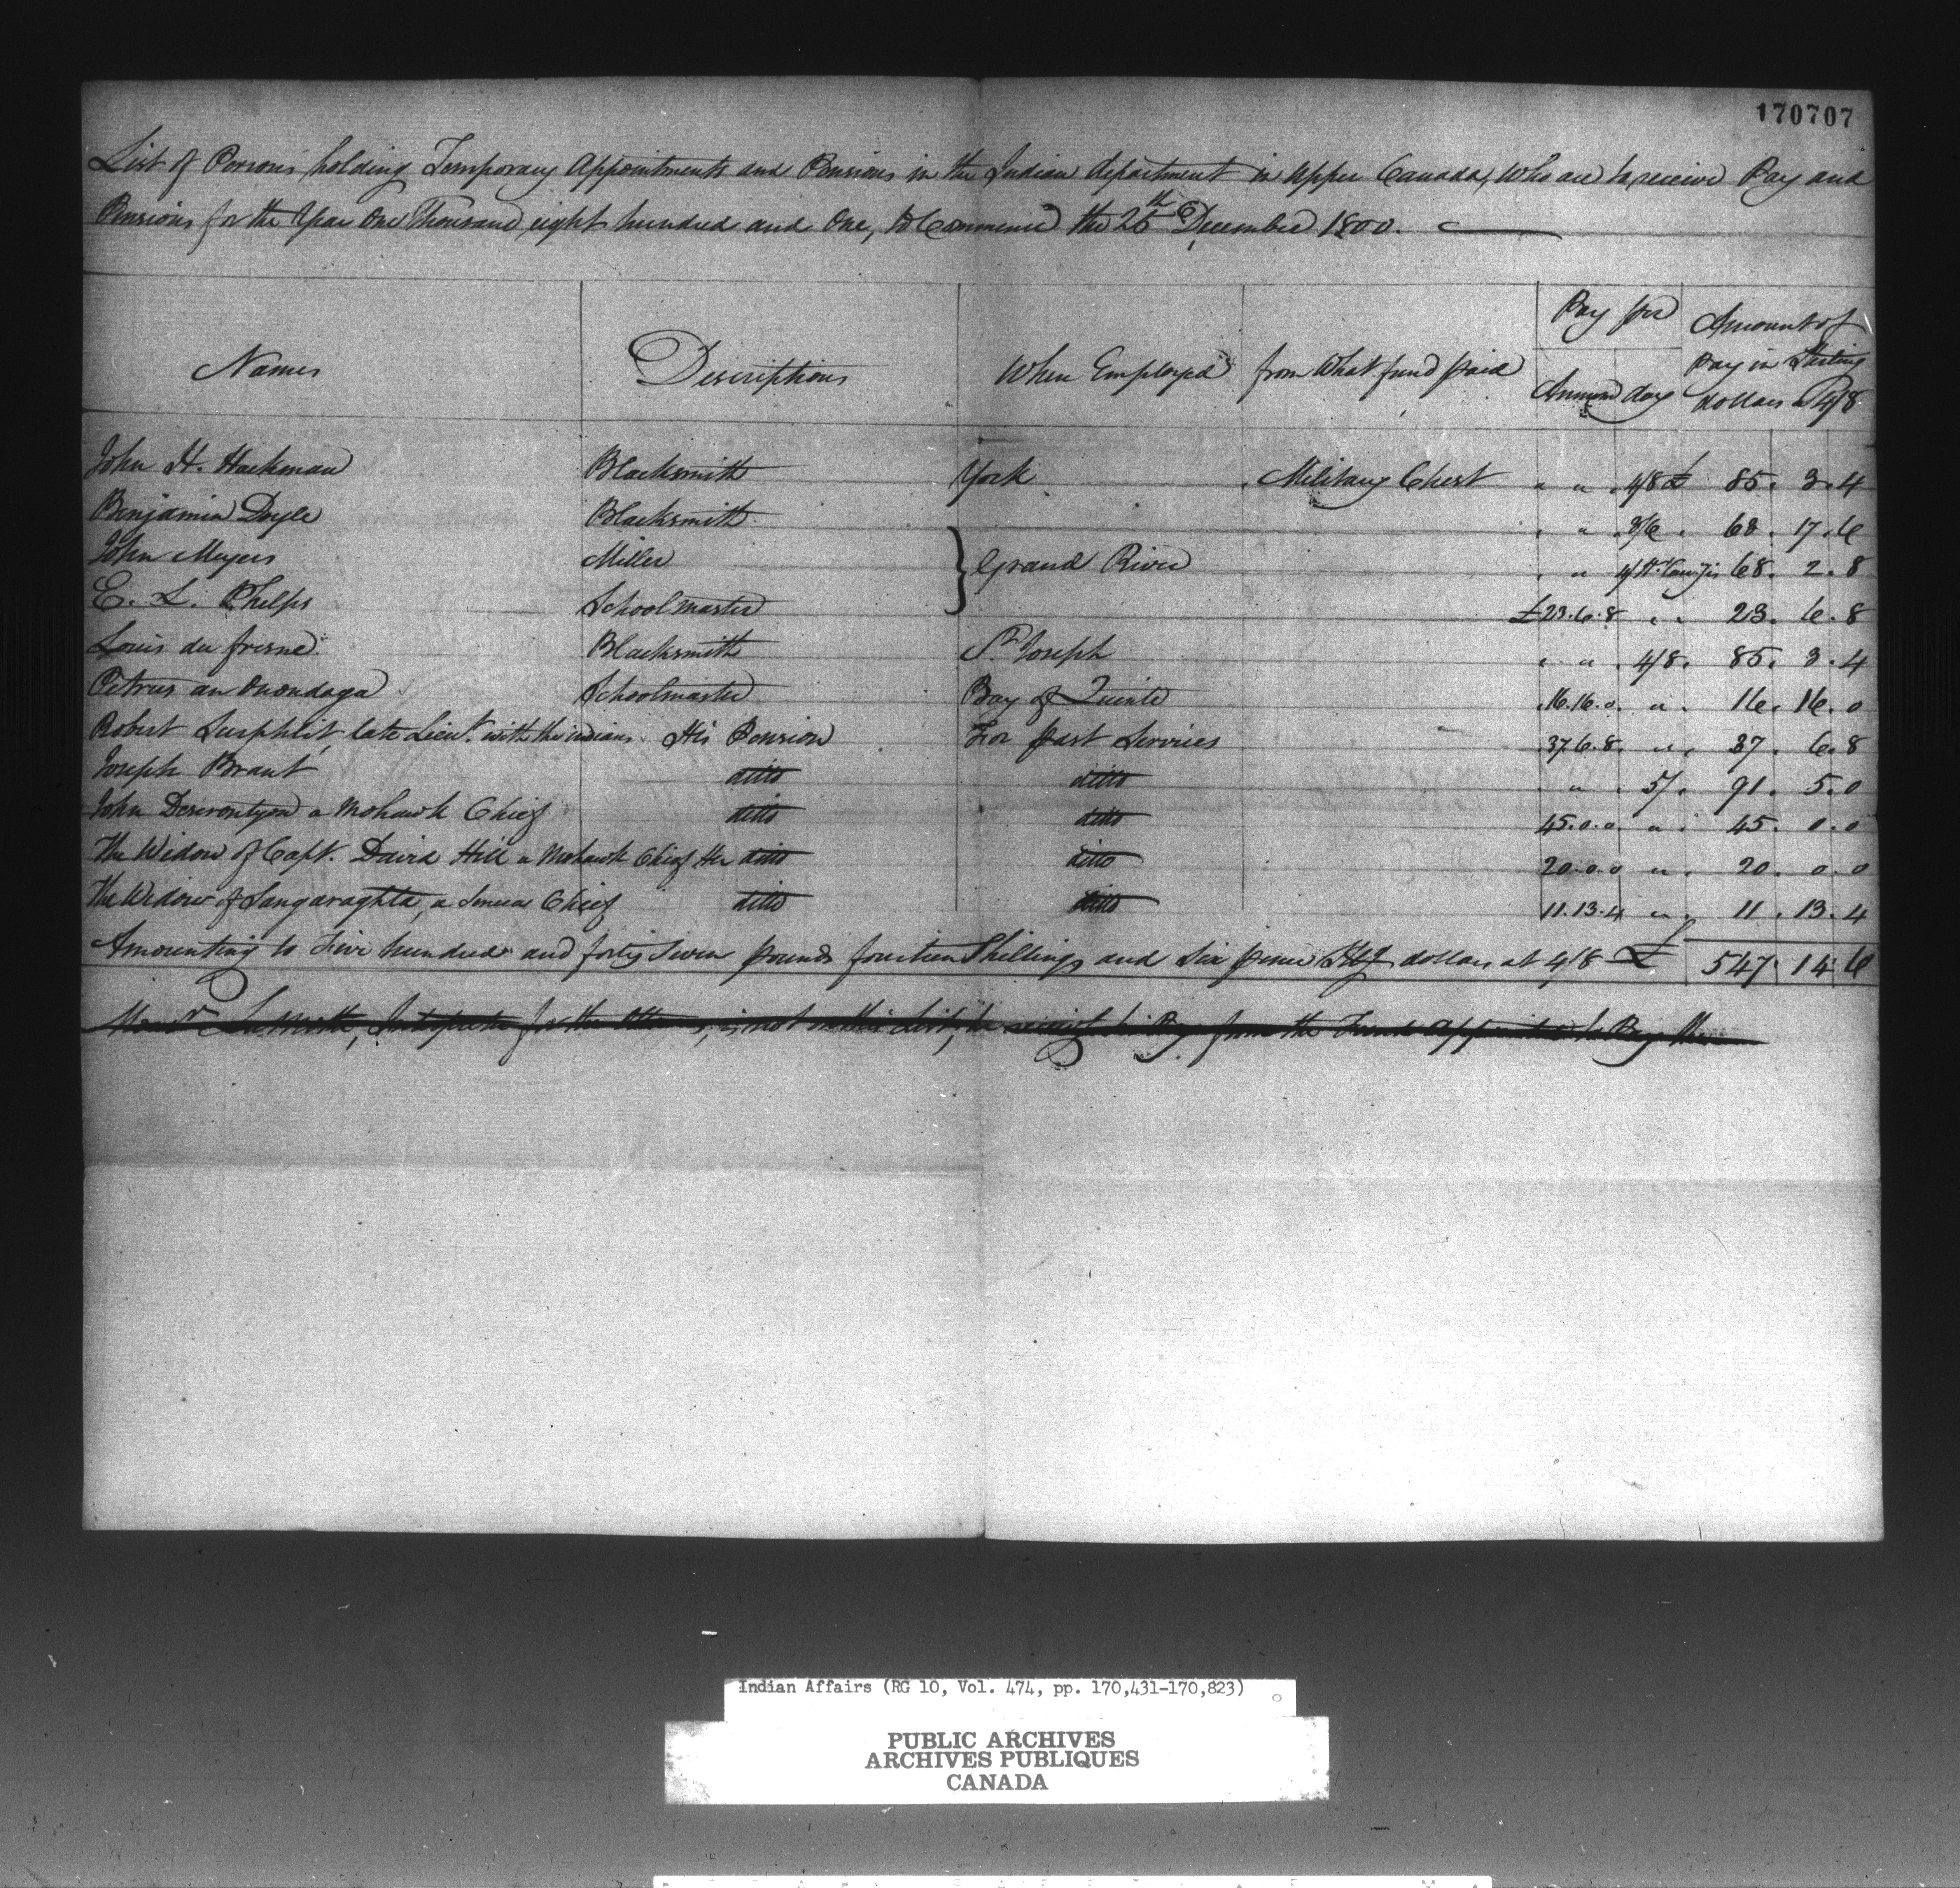 170707
List of Persons holding Temporary Appointments and Pensions in the Indian department in Upper Canada, who are to receive Pay and
Pensions for the Year One Thousand eight hundred and One, to Commence the 25th December 1800.
Names Descriptions When Employed from What fund paid Pay per Annum day Amount of Pay in Sterling dollars @ 4/8
John H. Hackman Blacksmith York Military Chest " " 4/8 £ 85. 3. 4
Benjamin Doyle Blacksmith " " 3/6 63. 17. 6
John Meyers Miller } Grand River " " 4/ H. 68. 2. 8
E. L. Phelps Schoolmaster £23.6.8 " " 23. 6. 8
Louis du fresne Blacksmith St. Joseph " " 4/8. 85. 3. 4
Petrus an Onondaga Schoolmaster Bay of Quinte 16.16.0. " 16. 16. 0
Robert late Lieut. with the indians His Pension For past Services 37.6.8. " 37. 6. 8
Joseph Brant ditto ditto " 5/. 91. 5. 0
John Deserontyon a Mohawk Chief ditto ditto 45.0.0. " 45. 0. 0
The Widow of Capt. David Hill a Mohawk Chief Her ditto ditto 20.0.0 " 20. 0. 0
The Widow of Sangaraghta, a Seneca Chief ditto ditto 11.13.4 " 11. 13. 4
Amounting to Five hundred and forty Seven pounds fourteen Shillings and Six pence Stg dollars at 4/8 £ 547. 14 6
for the is not in this List, he his Pay from the to Pay the
Indian Affairs (RG 10, Vol. 474, pp. 170,431-170,823)
PUBLIC ARCHIVES
ARCHIVES PUBLIQUES
CANADA